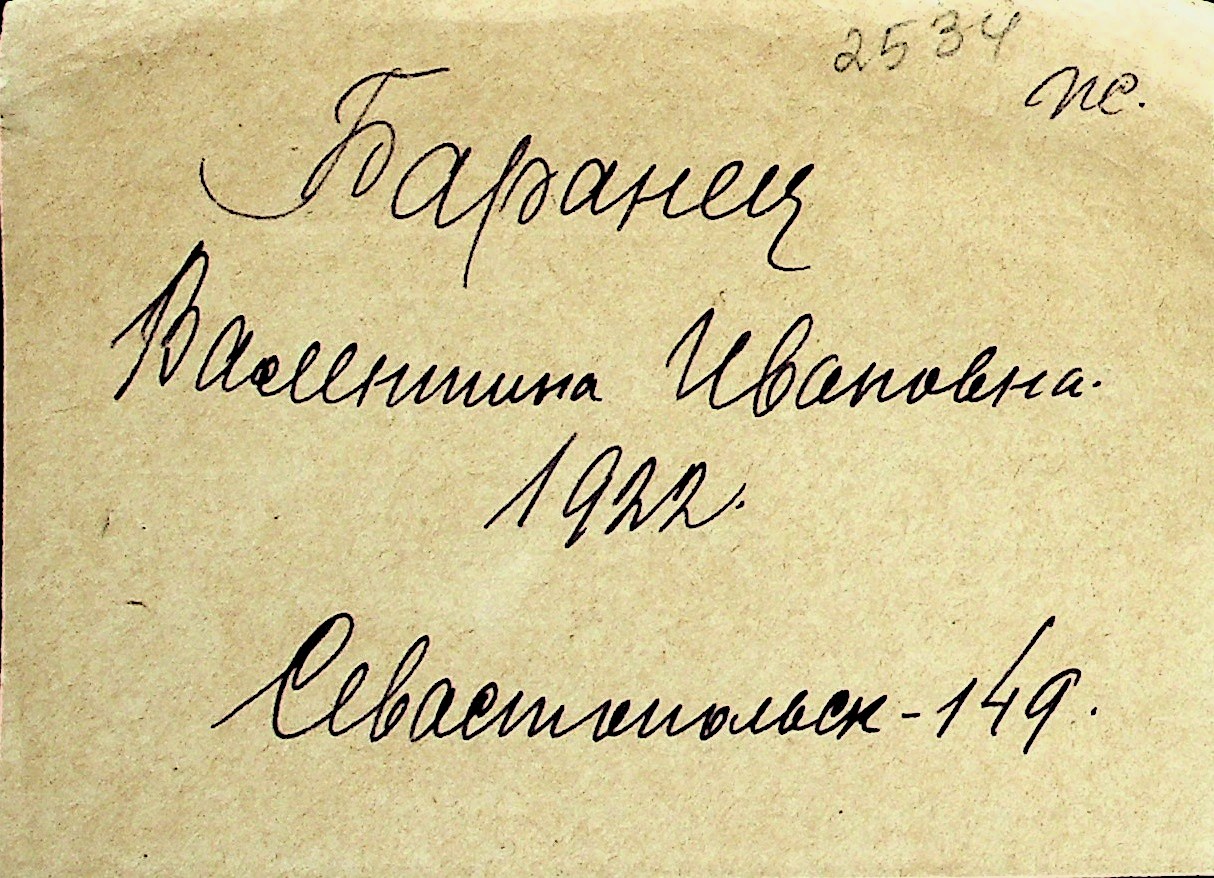 2534
пс.
Баранец
Валентина Ивановна.
1922.
Севастопольск-149.